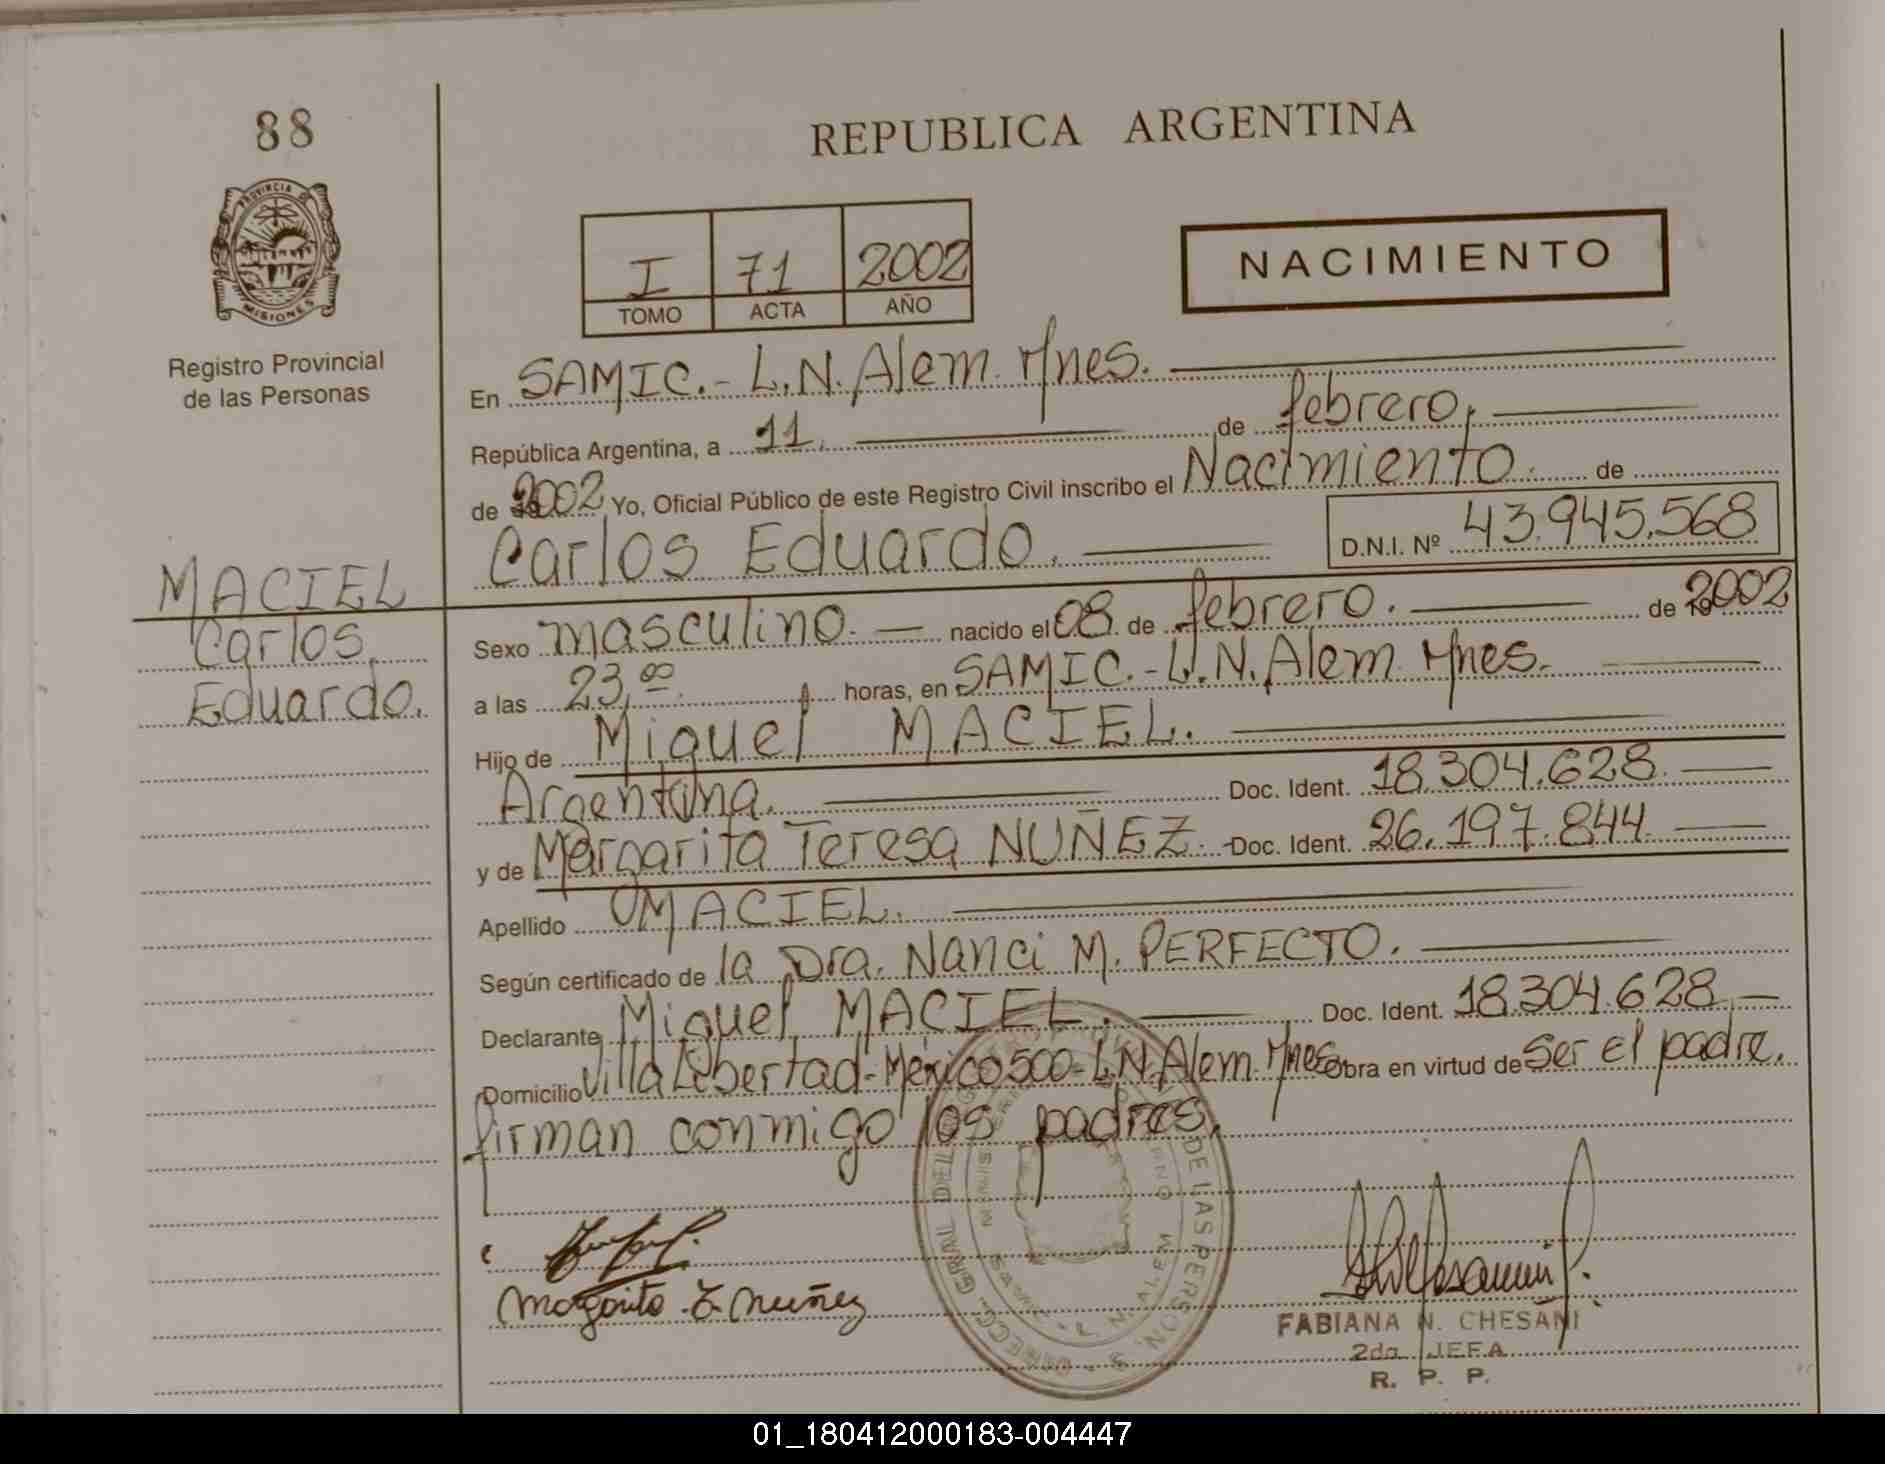 88
REPUBLICA ARGENTINA
PROVINCIA DE
MISIONES
Registro Provincial
de las Personas
I 71 2002
TOMO ACTA AÑO
NACIMIENTO
En SAMIC.- L.N. Alem. Mnes.
República Argentina, a 11. de febrero.
de 2002 Yo, Oficial Público de este Registro Civil inscribo el Nacimiento. de
Carlos Eduardo. D.N.I. Nº 43.945.568
MACIEL
Carlos
Eduardo.
Sexo masculino. nacido el 08. de febrero. de 2002
a las 23,00. horas, en SAMIC.- L.N. Alem. Mnes.
Hijo de Miguel MACIEL.
Argentina. Doc. Ident. 18.304.628.
y de Margarita Teresa NUÑEZ. Doc. Ident. 26.197.844.
Apellido MACIEL.
Según certificado de la Dra. Nanci M. PERFECTO.
Declarante Miguel MACIEL. Doc. Ident. 18.304.628.
Domicilio Villa Libertad-México 500-L.N. Alem. Mnes. obra en virtud de ser el padre.
firman conmigo los padres.
Margarita T. Nuñez
DE LAS PERSON
L. N. ALEM
FABIANA N. CHESANI
2da JEFA
R. P. P.
01_180412000183-004447